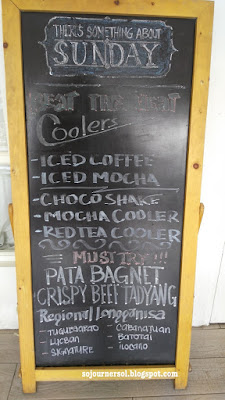 THERE'S SOMETHING ABOUT
SUNDAY
BEAT THE HEAT
Coolers
- ICED COFFEE
- ICED MOCHA
- CHOCO SHAKE
- MOCHA COOLER
- RED TEA COOLER
MUST TRY!!!
PATA BAGNET
CRISPY BEEF TADYANG
Regional Longganisa
- TUGUEGARAO - CABANATUAN
- LUCBAN - BATUTAI
- SIGNATURE - ILOCANO
sojournersol.blogspot.com